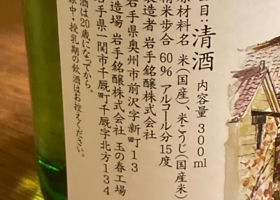 目:清酒 内容量 300ml
原材料名:米(国産)、米こうじ(国産米)
精米歩合 60% アルコール分 15度
製造者 岩手銘醸株式会社
岩手県奥州市前沢字新町13
製造場 岩手銘醸株式会社 玉の春工場
岩手県一関市千厩町千厩字北方134
飲酒は20歳になってから。
妊娠中・授乳期の飲酒はお控えください。